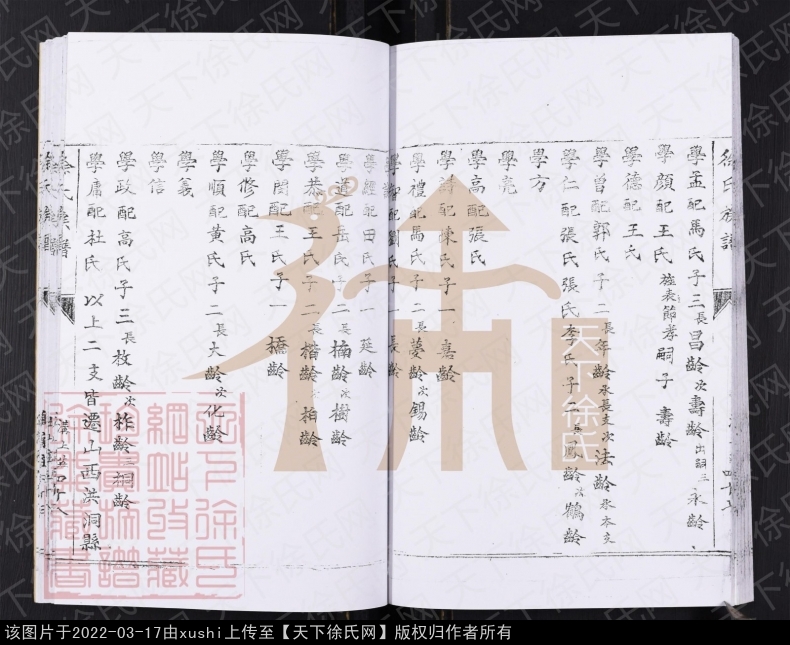 徐氏族譜
學孟配馬氏子三長昌齡次壽齡出嗣三永齡
學顏配王氏旌表節孝嗣子壽齡
學德配王氏
學曾配郭氏子二長年齡承長支次法齡承本支
學仁配張氏張氏李氏子二長鳳齡次鶴齡
學方
學亮
學高配張氏
學詩配陳氏子一嘉齡
學禮配馬氏子二長夢齡次錫齡
配劉氏子一長齡
學經配田氏子一莚齡
學道配岳氏子二長楠齡次樹齡
學恭配王氏子二長楷齡次柏齡
學閔配王氏子一橋齡
學修配高氏
學順配黃氏子二長大齡次化齡
學義
學信
學政配高氏子三長枚齡次柞齡三桐齡
學庸配杜氏以上二支皆遷山西洪洞縣
天下徐氏
天下徐氏網站收藏
该图片于2022-03-17由xushi上传至【天下徐氏网】版权归作者所有